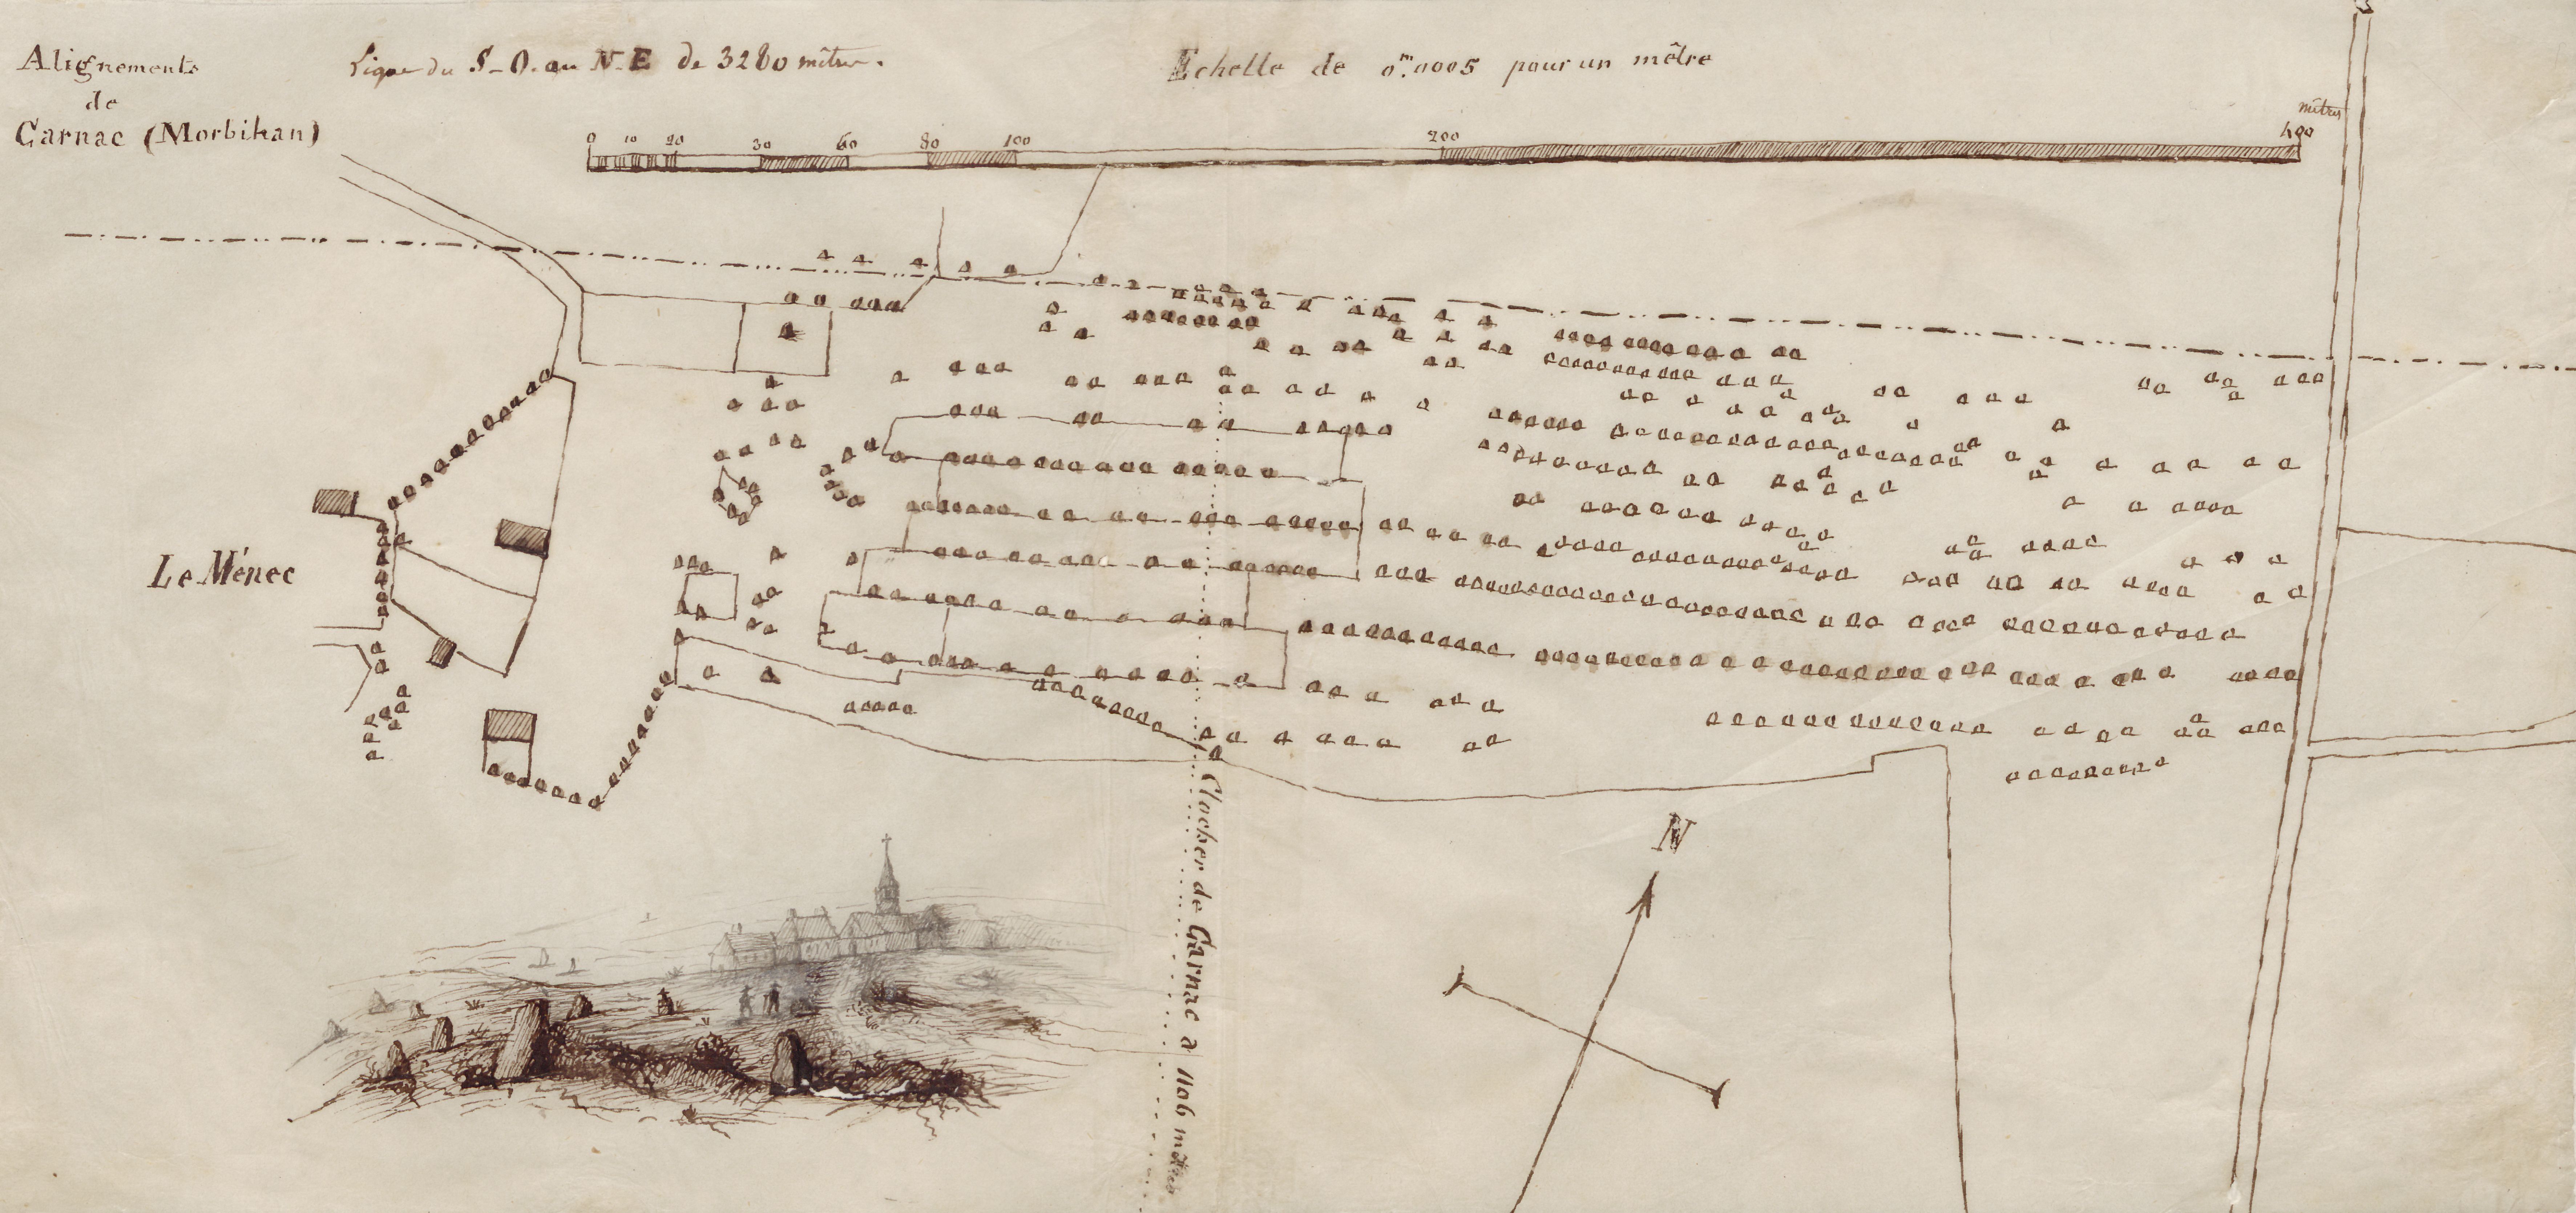 Alignements
de
Carnac (Morbihan)
Ligne du S-O. au N-E de 3280 mètres.
Echelle de 0m.0005 pour un mêtre
mètres
0 10 20 30 60 80 100 200 400
Le Ménec
Clocher de Carnac a 1106 mètres
N